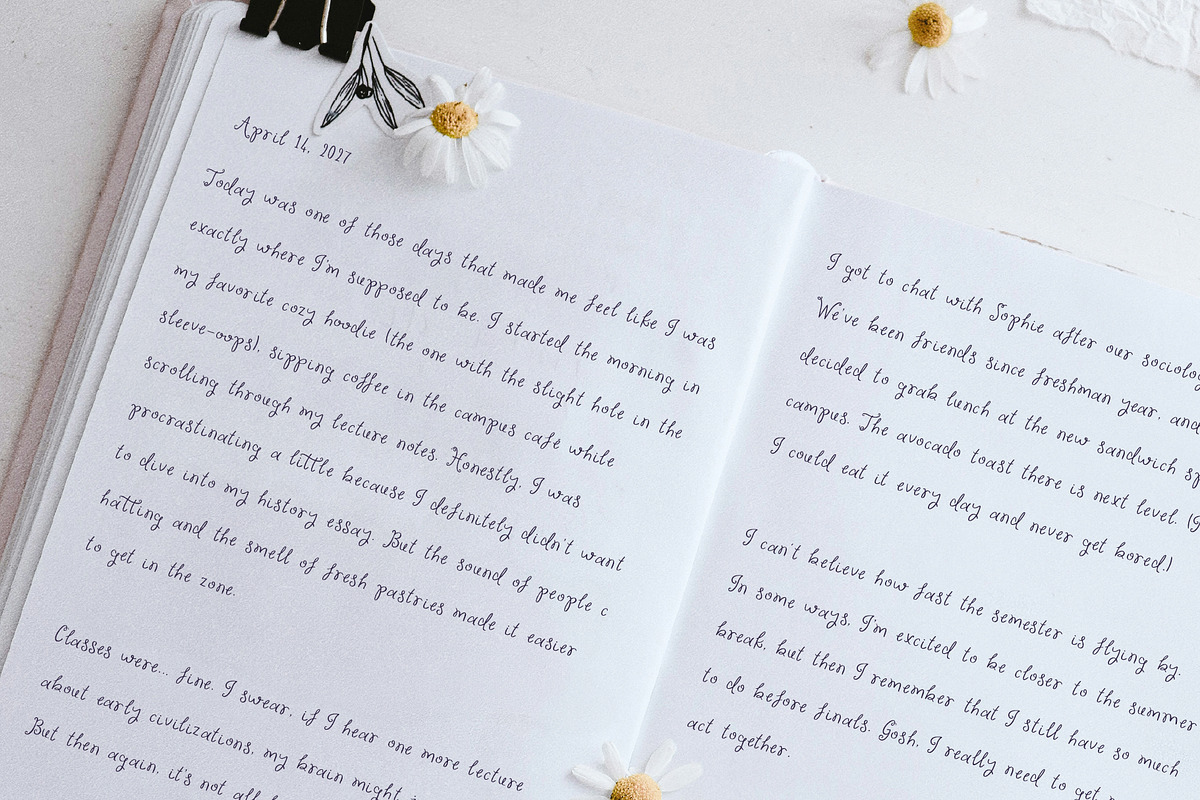 April 14, 2027
Today was one of those days that made me feel like I was
exactly where I'm supposed to be. I started the morning in
my favorite cozy hoodie (the one with the slight hole in the
sleeve-oops), sipping coffee in the campus café while
scrolling through my lecture notes. Honestly, I was
procrastinating a little because I definitely didn't want
to dive into my history essay. But the sound of people c
hatting and the smell of fresh pastries made it easier
to get in the zone.
Classes were... fine. I swear, if I hear one more lecture
about early civilizations, my brain might
But then again, it's not all
I got to chat with Sophie after our
We've been friends since freshman year, and
decided to grab lunch at the new sandwich
campus. The avocado toast there is next level. (
I could eat it every day and never get bored.)
I can't believe how fast the semester is flying by.
In some ways, I'm excited to be closer to the summer
break, but then I remember that I still have so much
to do before finals. Gosh, I really need to get
act together.